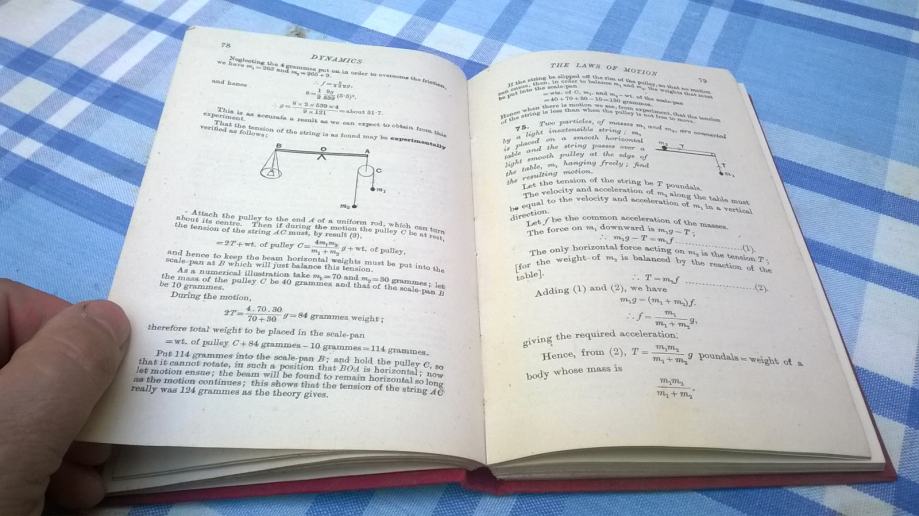 78
DYNAMICS
Neglecting the 4 grammes put on in order to overcome the friction,
we have m₁=265 and m₂=265+9.
and hence
This is as accurate a result as we can expect to obtain from this
experiment.
That the tension of the string is as found may be experimentally
verified as follows;
B O A
C
m₁
m₂
Attach the pulley to the end A of a uniform rod, which can turn
about its centre. Then if during the motion the pulley C be at rest,
the tension of the string AC must, by result (9),
=2T+wt. of pulley C=4m₁m₂/(m₁+m₂) g+wt. of pulley,
and hence to keep the beam horizontal weights must be put into the
scale-pan at B which will just balance this tension.
As a numerical illustration take m₁=70 and m₂=30 grammes; let
the mass of the pulley C be 40 grammes and that of the scale-pan B
be 10 grammes.
During the motion,
2T=4.70.30/(70+30) g=84 grammes weight;
therefore total weight to be placed in the scale-pan
=wt. of pulley C+84 grammes−10 grammes=114 grammes.
Put 114 grammes into the scale-pan B; and hold the pulley C, so
that it cannot rotate, in such a position that BOA is horizontal; now
let motion ensue; the beam will be found to remain horizontal so long
as the motion continues; this shows that the tension of the string AC
really was 124 grammes as the theory gives.
THE LAWS OF MOTION
79
If the string be slipped off the rim of the pulley, so that no motion
can ensue, then, in order to balance m₁ and m₂, the weights that must
be put into the scale-pan
=wts. of C, m₁, and m₂−wt. of the scale-pan
=40+70+30−10=130 grammes.
Hence when there is motion we see, from experiment, that the tension
of the string is less than when the pulley is not free to move.
75. Two particles, of masses m₁ and m₂, are connected
by a light inextensible string; m₂
is placed on a smooth horizontal
table and the string passes over a
light smooth pulley at the edge of
the table, m₁ hanging freely; find
the resulting motion.
m₂ T
m₁
Let the tension of the string be T poundals.
The velocity and acceleration of m₂ along the table must
be equal to the velocity and acceleration of m₁ in a vertical
direction.
Let f be the common acceleration of the masses.
The force on m₁ downward is m₁g−T;
∴ m₁g−T=m₁f ..................(1).
The only horizontal force acting on m₂ is the tension T;
[for the weight of m₂ is balanced by the reaction of the
table].
∴ T=m₂f ..................(2).
Adding (1) and (2), we have
m₁g=(m₁+m₂)f.
∴ f=m₁/(m₁+m₂) g,
giving the required acceleration.
Hence, from (2), T=m₁m₂/(m₁+m₂) g poundals=weight of a
body whose mass is
m₁m₂/(m₁+m₂).